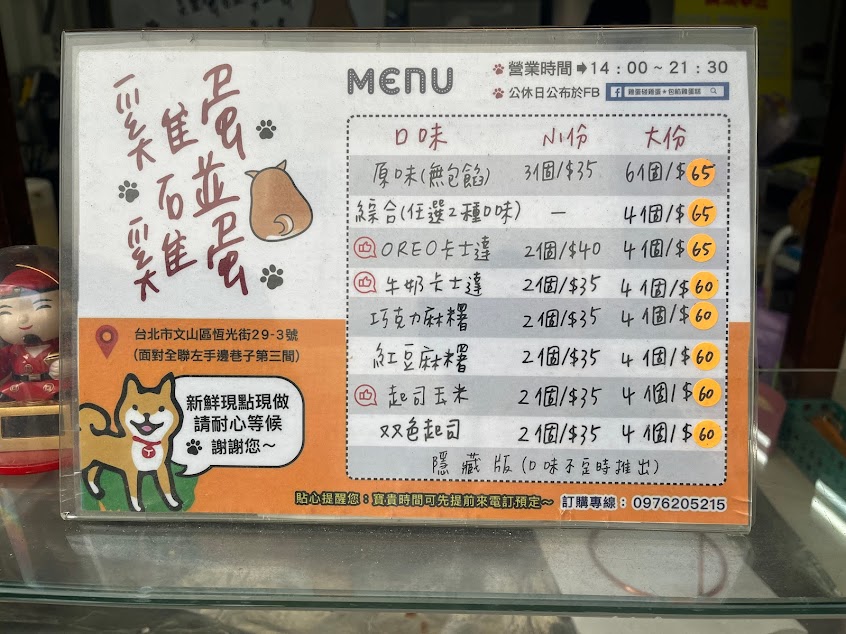 雞蛋
碰
雞蛋
MENU
營業時間➡14：00～21：30
公休日公布於FB
雞蛋碰雞蛋★包餡雞蛋糕
口味 小份 大份
原味(無包餡) 3個/$35 6個/$65
綜合(任選2種口味) — 4個/$65
OREO卡士達 2個/$40 4個/$65
牛奶卡士達 2個/$35 4個/$60
巧克力麻糬 2個/$35 4個/$60
紅豆麻糬 2個/$35 4個/$60
起司玉米 2個/$35 4個/$60
双色起司 2個/$35 4個/$60
隱藏版(口味不定時推出)
台北市文山區恆光街29-3號
(面對全聯左手邊巷子第三間)
新鮮現點現做
請耐心等候
謝謝您～
貼心提醒您：寶貴時間可先提前來電訂預定～ 訂購專線：0976205215